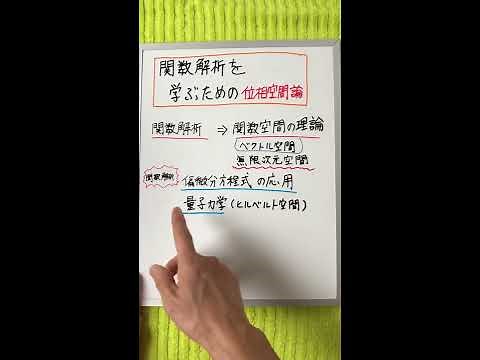 関数解析を
学ぶための位相空間論
関数解析 ⇒ 関数空間の理論
ベクトル空間
無限次元空間
関数解析 偏微分方程式の応用
量子力学(ヒルベルト空間)